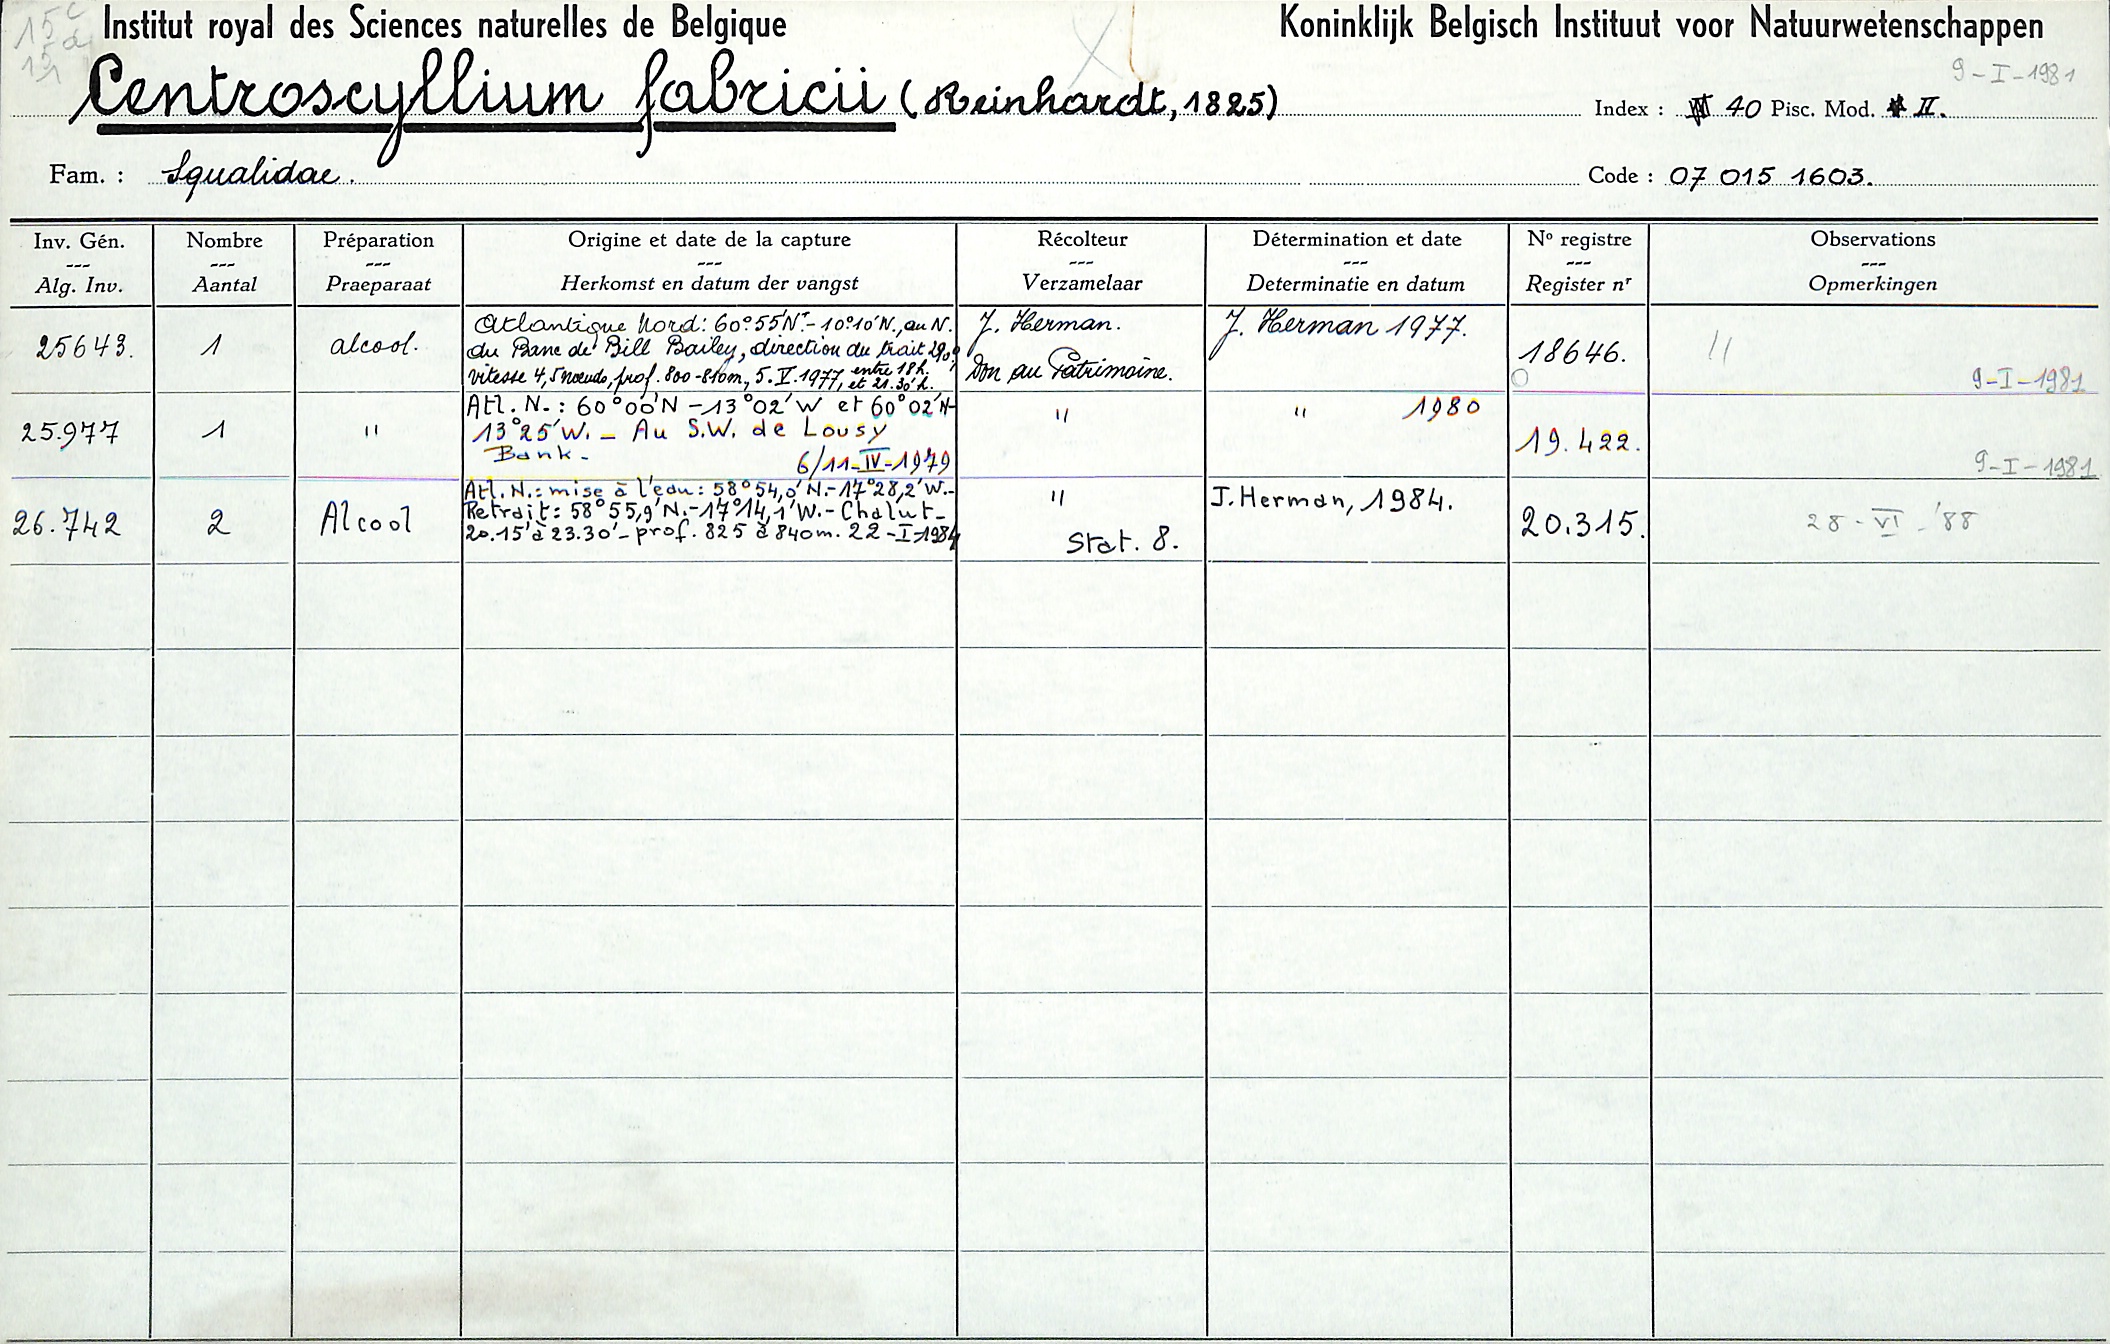 Institut royal des Sciences naturelles de Belgique
Koninklijk Belgisch Instituut voor Natuurwetenschappen
9-I-1981
Centroscyllium fabricii (Reinhardt, 1825)
Index : 40 Pisc. Mod. II.
Fam. : Squalidae.
Code : 07 015 1603.
Inv. Gén. --- Alg. Inv.
Nombre --- Aantal
Préparation --- Praeparaat
Origine et date de la capture --- Herkomst en datum der vangst
Récolteur --- Verzamelaar
Détermination et date --- Determinatie en datum
No registre --- Register nr
Observations --- Opmerkingen
25643.
1
alcool.
Atlantique Nord: 60°55'N.- 10°10'N., au N.
du Banc de Bill Bailey, direction du trait 290°
vitesse 4,5 nœuds, prof. 800-810m, 5.V.1977, entre 18h. et 21.30'h.
J. Herman.
Don au Patrimoine.
J. Herman 1977.
18646.
"
9-I-1981
25.977
1
"
Atl. N.: 60°00'N - 13°02'W et 60°02'N-
13°25'W. - Au S.W. de Lousy
Bank.-
6/11-IV-1979
"
" 1980
19.422.
9-I-1981
26.742
2
Alcool
Atl. N.: mise à l'eau: 58°54,0'N.-17°28,2'W.-
Retrait: 58°55,9'N.-17°14,1'W.- Chalut-
20.15'à 23.30'- prof. 825 à 840m. 22-I-1984
"
Stat. 8.
J. Herman, 1984.
20.315.
28-VI-'88